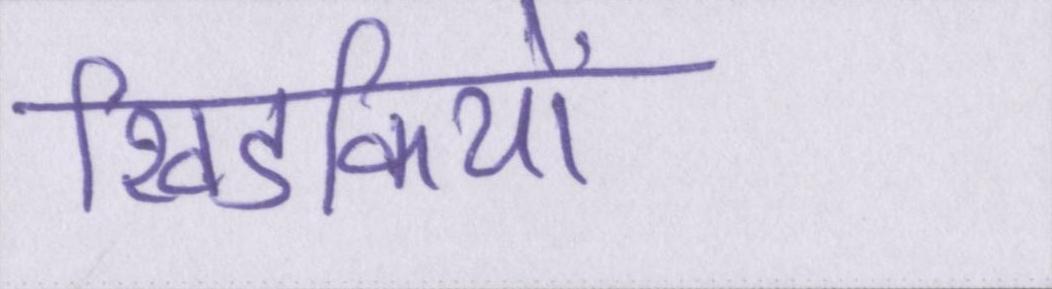 खिडकियों